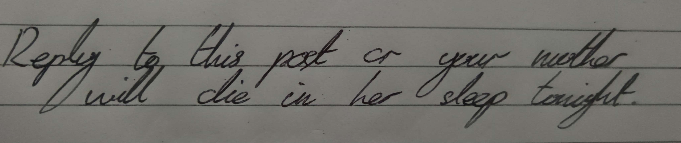 Reply to this post or your mother
will die in her sleep tonight.